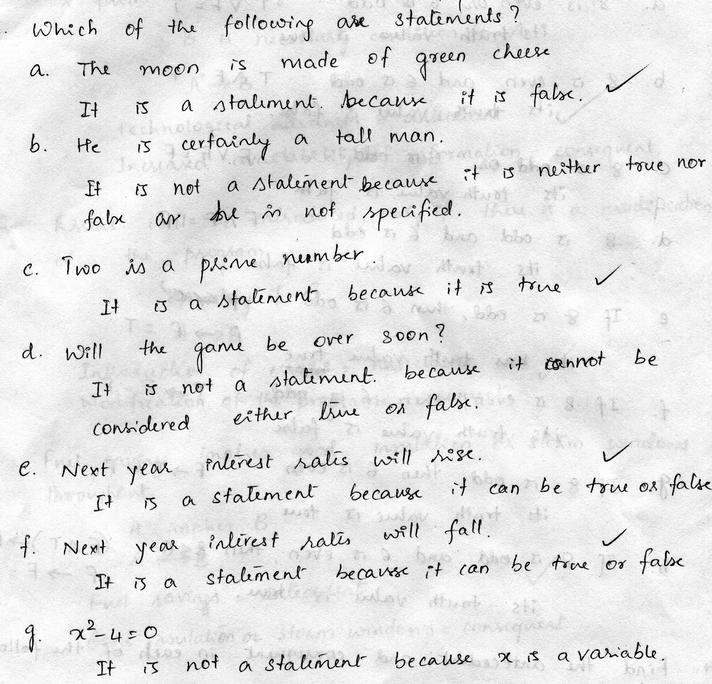 Which of the following are statements?
a. The moon is made of green cheese
It is a statement. because it is false. ✓
b. He is certainly a tall man.
It is not a statement because it is neither true nor
false as he is not specified.
c. Two is a prime number.
It is a statement because it is true ✓
d. Will the game be over soon?
It is not a statement. because it cannot be
considered either true or false.
e. Next year interest rates will rise. ✓
It is a statement because it can be true or false
f. Next year interest rates will fall. ✓
It is a statement because it can be true or false
g. x²-4=0
It is not a statement because x is a variable.